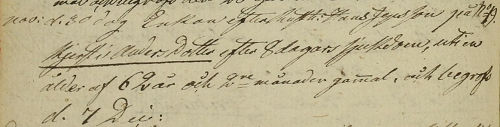 nov: d. 30 dog Enkan efter Matth: Hans Jonson på
Kjersti Anders Dotter efter 8 dagars sjukdom, uti en
ålder af 62 år och 2ne månader gammal, och begrofs
d. 7 Dec: